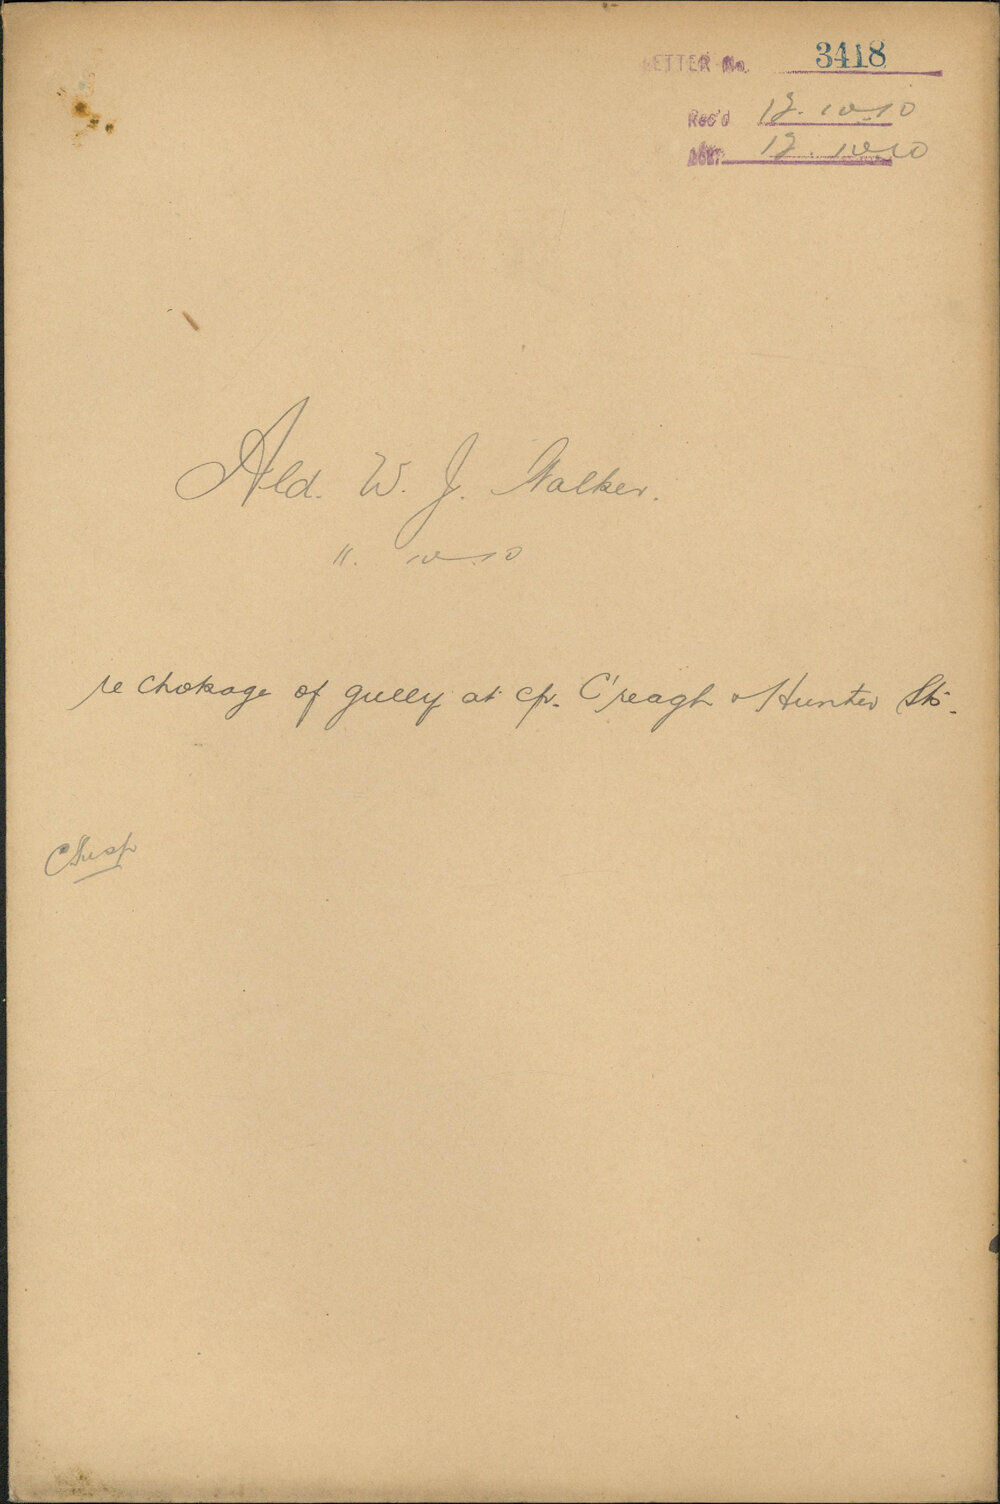 LETTER No. 3418
Rec'd 12.10.10
12.10.10
Ald. W. J. Walker.
11. 10.10
re chokage of gully at cr. C'reagh & Hunter Sts.